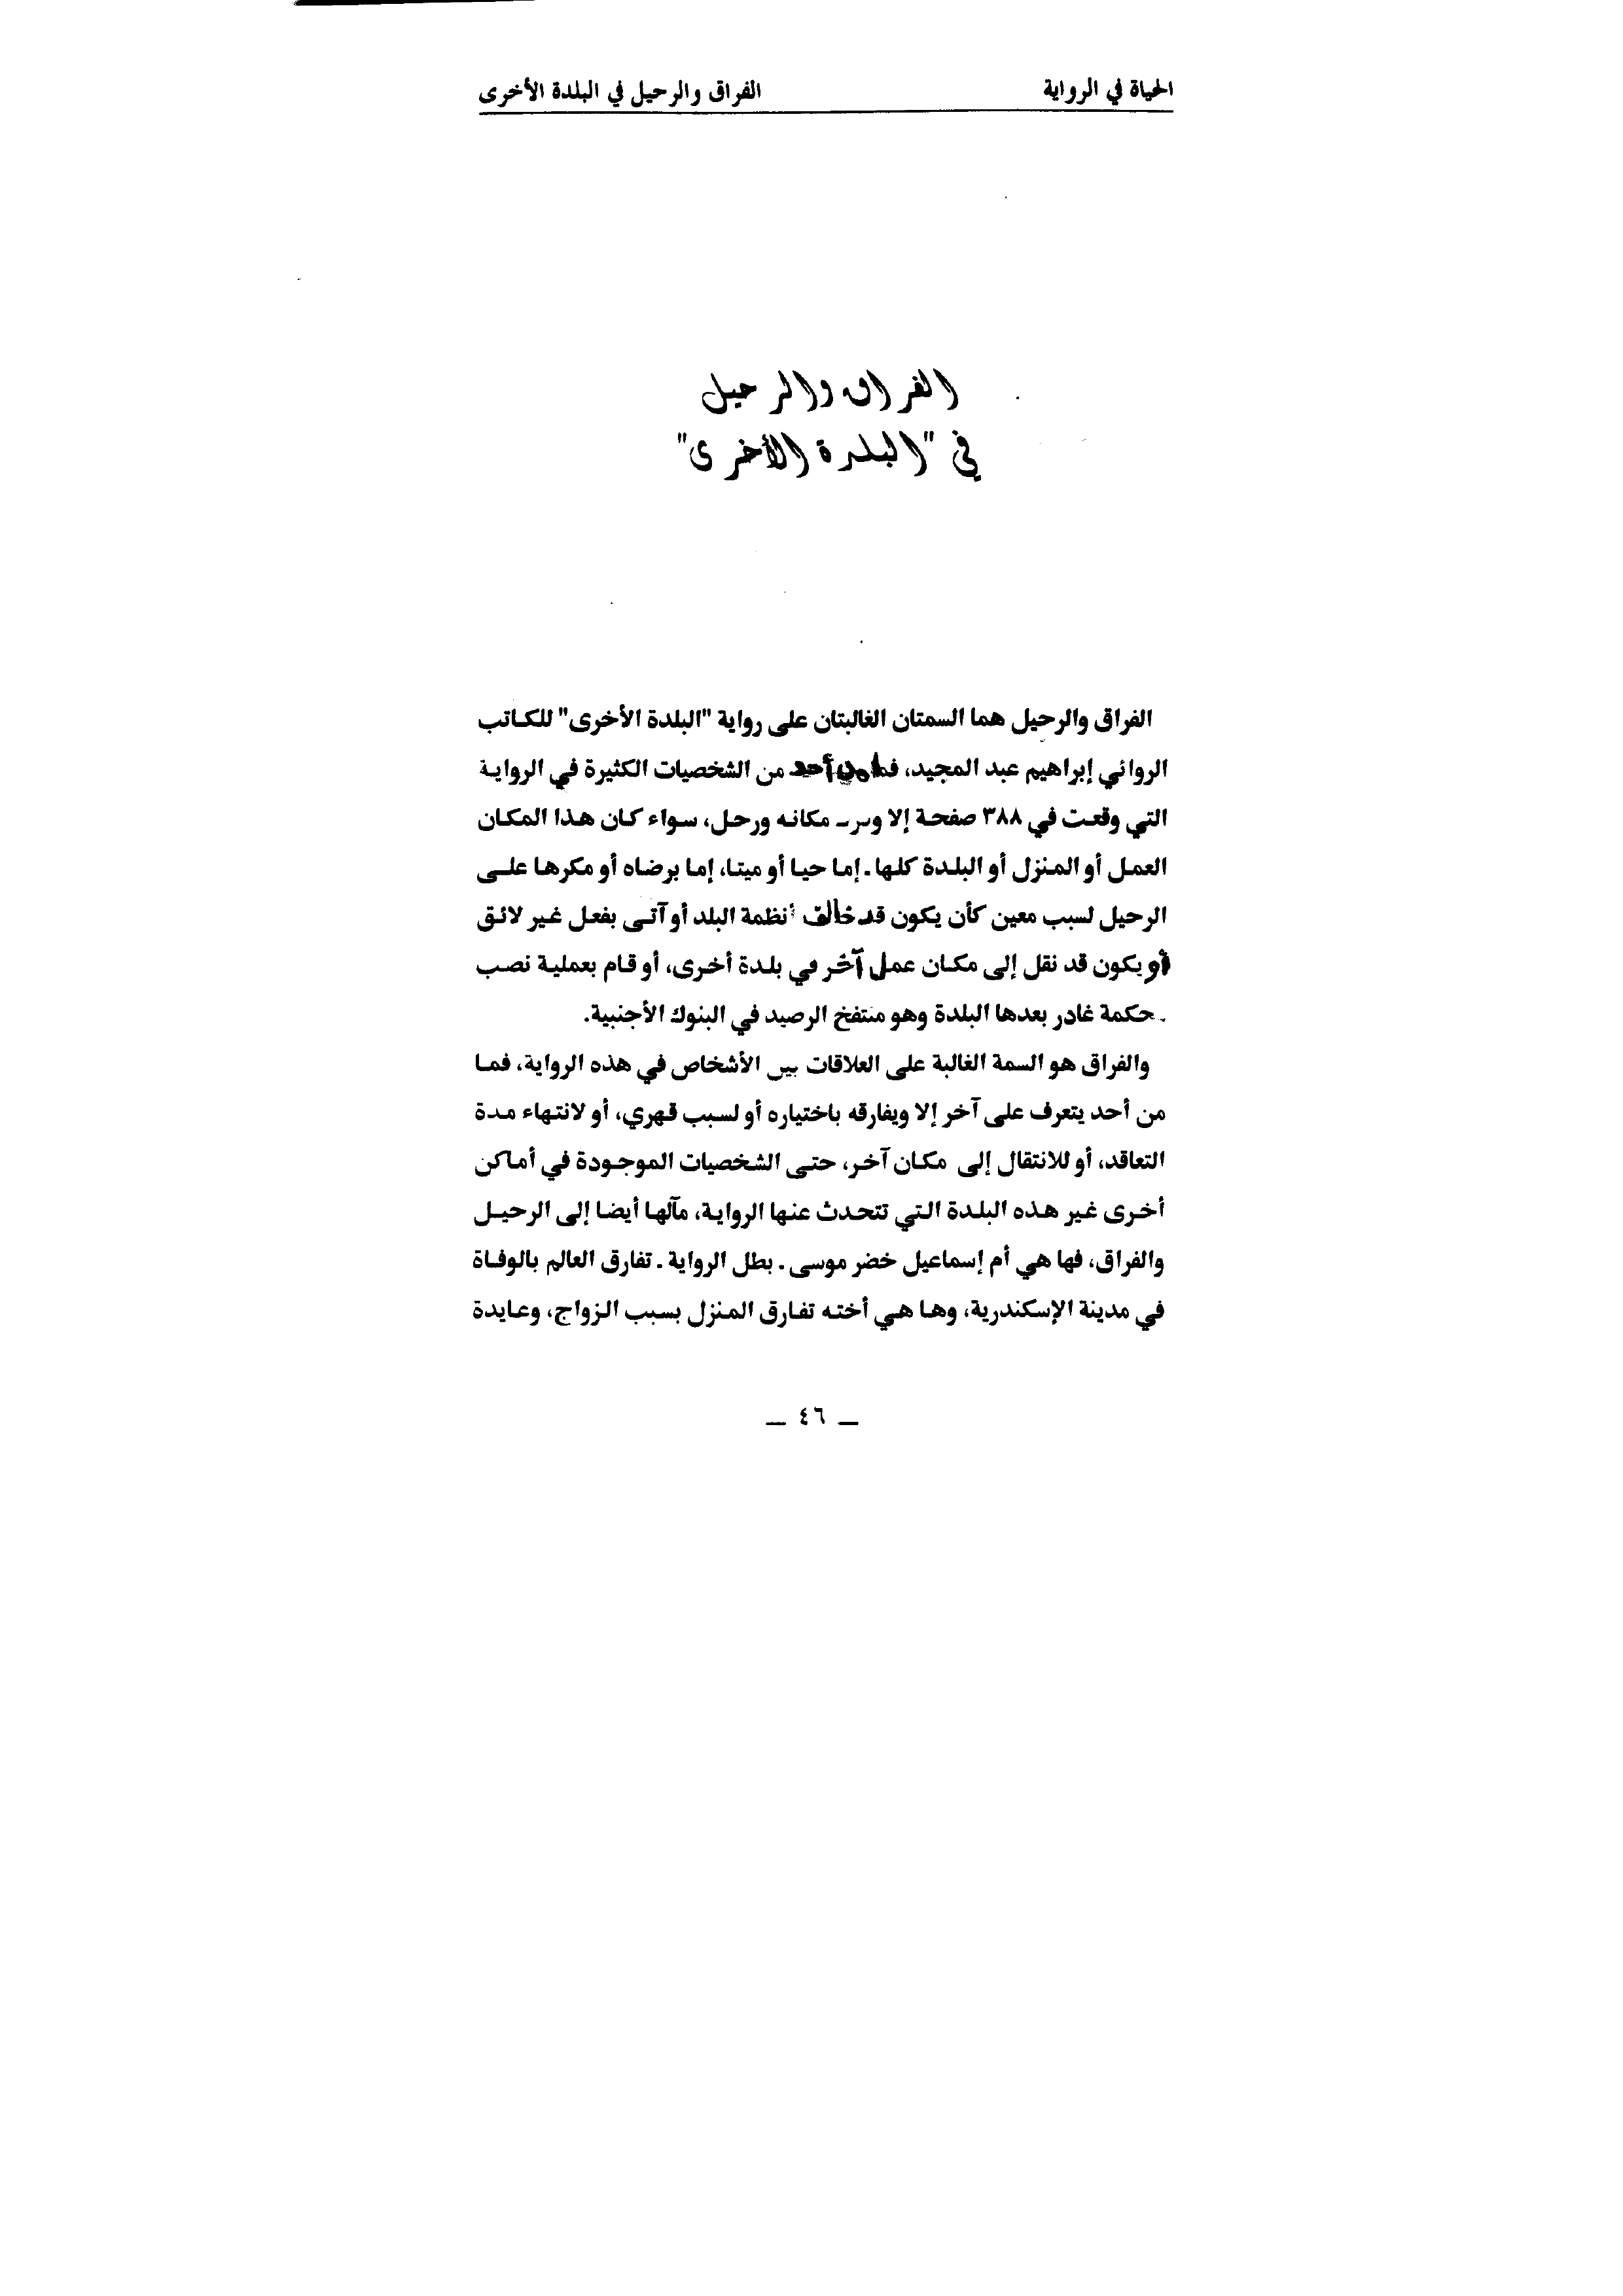 الحياة في الرواية
الفراق والرحيل في البلدة الأخرى
الفراق والرحيل
في "البلدة الأخرى"
الفراق والرحيل هما السمتان الغالبتان على رواية "البلدة الأخرى" للكاتب
الروائي إبراهيم عبد المجيد، فما من أحد من الشخصيات الكثيرة في الرواية
التي وقعت في ٣٨٨ صفحة إلا مكانه ورحل، سواء كان هذا المكان
العمل أو المنزل أو البلدة كلها. إما حيا أو ميتا، إما برضاه أو مكرها على
الرحيل لسبب معين كأن يكون قد خالف أنظمة البلد أو آتى بفعل غير لائق
أو يكون قد نقل إلى مكان عمل آخر في بلدة أخرى، أو قام بعملية نصب
حكمة غادر بعدها البلدة وهو منتفخ الرصيد في البنوك الأجنبية.
والفراق هو السمة الغالبة على العلاقات بين الأشخاص في هذه الرواية، فما
من أحد يتعرف على آخر إلا ويفارقه باختياره أو لسبب قهري، أو لانتهاء مدة
التعاقد، أو للانتقال إلى مكان آخر، حتى الشخصيات الموجودة في أماكن
أخرى غير هذه البلدة التي تتحدث عنها الرواية، مآلها أيضا إلى الرحيل
والفراق، فها هي أم إسماعيل خضر موسى. بطل الرواية. تفارق العالم بالوفاة
في مدينة الإسكندرية، وها هي أخته تفارق المنزل بسبب الزواج، وعايدة
— ٤٦ —